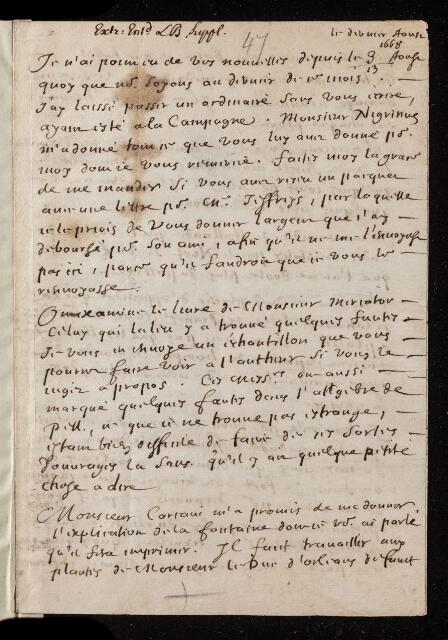 Extr: Entd LB Suppl.
47
le dernier Aoust
1668
Je n'ai point eu de vos nouvelles depuis le 3/13 Aoust
quoy que nous soyons au dernier de ce mois.
J'ay laissé passer un ordinaire sans vous écrire,
ayant esté a la Campagne. Monsieur Nigrinus
m'a donné tout ce que vous luy aviez donné pr.
moy dont ie vous remercie. Faites moy la grace
de me mander si vous avez receu un pacquet
avec une lettre pr. Mr. Jeffrys, par laquelle
ie le priois de vous donner l'argent que i'ay
deboursé pr. son ami, afin qu'il ne me l'envoyast
pas ici, parce qu'il faudroit que ie vous le
renvoyasse.
On examine le livre de Monsieur Mercator
Celuy qui l'a leu y a trouvé quelques fautes
Je vous en envoye un echantillon que vous
pourrez faire voir a l'autheur si vous le
iugez a propos. Ces Messrs. ont aussi
marqué quelques fautes dans l'algebre de
Pell, ce que ie ne trouve pas estrange,
estant bien difficile de faire de ces sortes
d'ouvrages la sans qu'il y ait quelque petite
chose a dire
Monsieur m'a promis de me donner
l'explication de la fontaine dont ie vs. ai parlé
qu'il fera imprimer. Il fait travailler aux
plantes de Monsieur le Duc d'orleans defunct